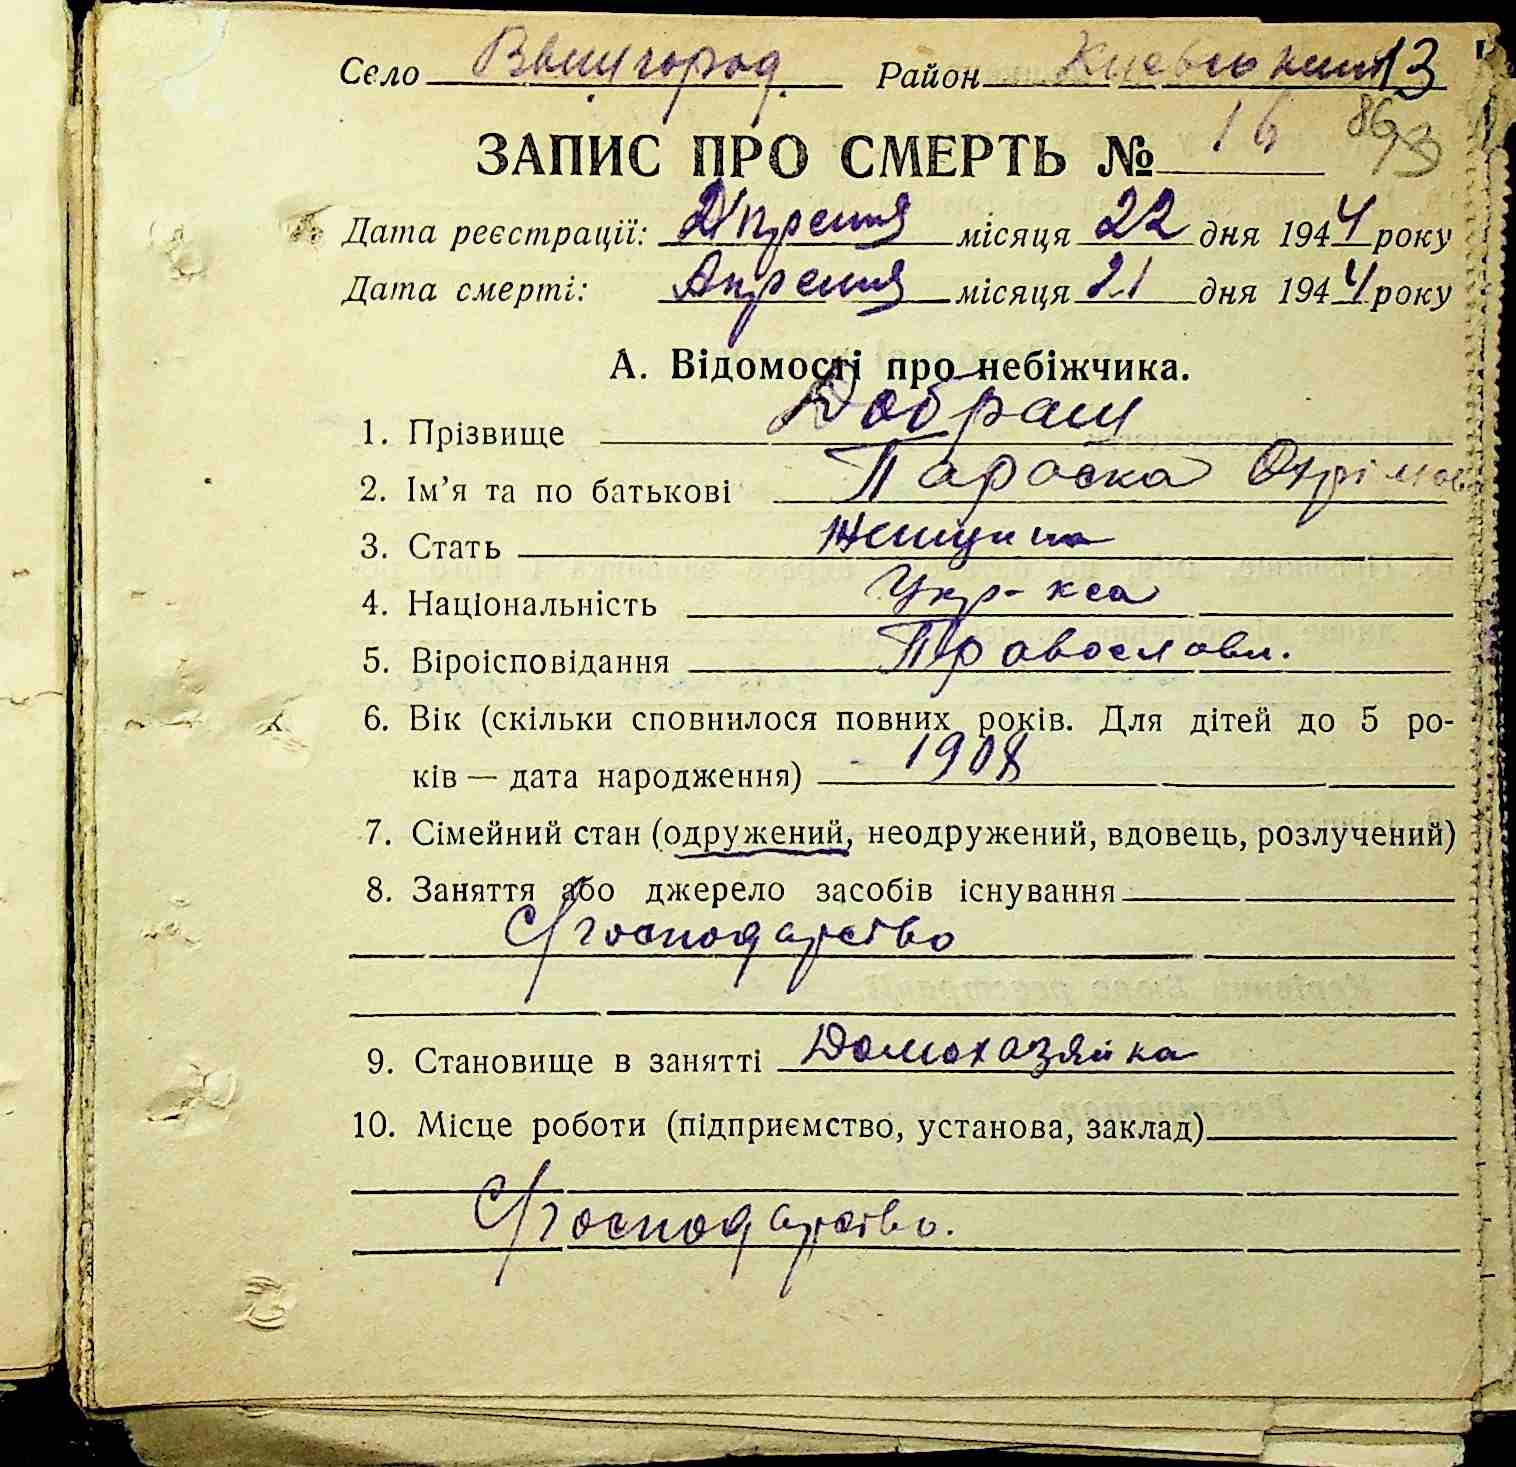 Село Вышгород Район Киевський 13
ЗАПИС ПРО СМЕРТЬ № 16 86
Дата реєстрації: Апреля місяця 22 дня 1944 року
Дата смерті: Апреля місяця 21 дня 1944 року
А. Відомості про небіжчика.
1. Прізвище Добраш
2. Ім'я та по батькові Параска Охрімов
3. Стать Женщина
4. Національність Укр-кса
5. Віроісповідання Православн.
6. Вік (скільки сповнилося повних років. Для дітей до 5 ро-
ків — дата народження) 1908
7. Сімейний стан (одружений, неодружений, вдовець, розлучений)
8. Заняття або джерело засобів існування
С/господарство
9. Становище в занятті Домохазяйка
10. Місце роботи (підприємство, установа, заклад)
С/господарство.